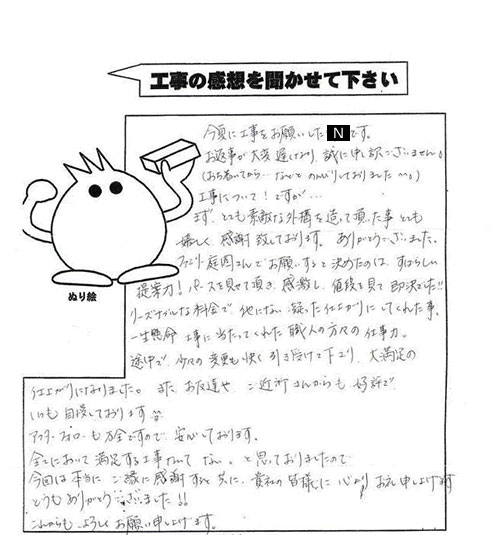 工事の感想を聞かせて下さい
今夏に工事をお願いしたNです。
お返事が大変遅くなり、誠に申し訳ございません。
(おちついてから…などと のんびりしておりました^^;)
工事について!ですが…
まず、とても素敵な外構を造って頂いた事とても
嬉しく感謝致しております。ありがとうございました。
ファミリー庭園さんでお願いすると決めたのは、すばらしい
提案力!パースを見せて頂き、感激し、値段を見て即決でした!!
リーズナブルな料金で、他にない凝った仕上がりにしてくれた事、
一生懸命 工事に当たってくれた職人の方々の仕事力。
途中で、少々の変更も快く引き受けて下さり、大満足の
ぬり絵
仕上がりになりました。また、お友達や、ご近所さんからも好評で
いつも自慢しております
アフターフォローも万全ですので、安心しております。
全てにおいて満足する工事なんてない。と思っておりましたので
今回は本当にご縁に感謝すると共に、貴社の皆様に心からお礼申し上げます
どうもありがとうございました!!
これからも、よろしくお願い申し上げます。